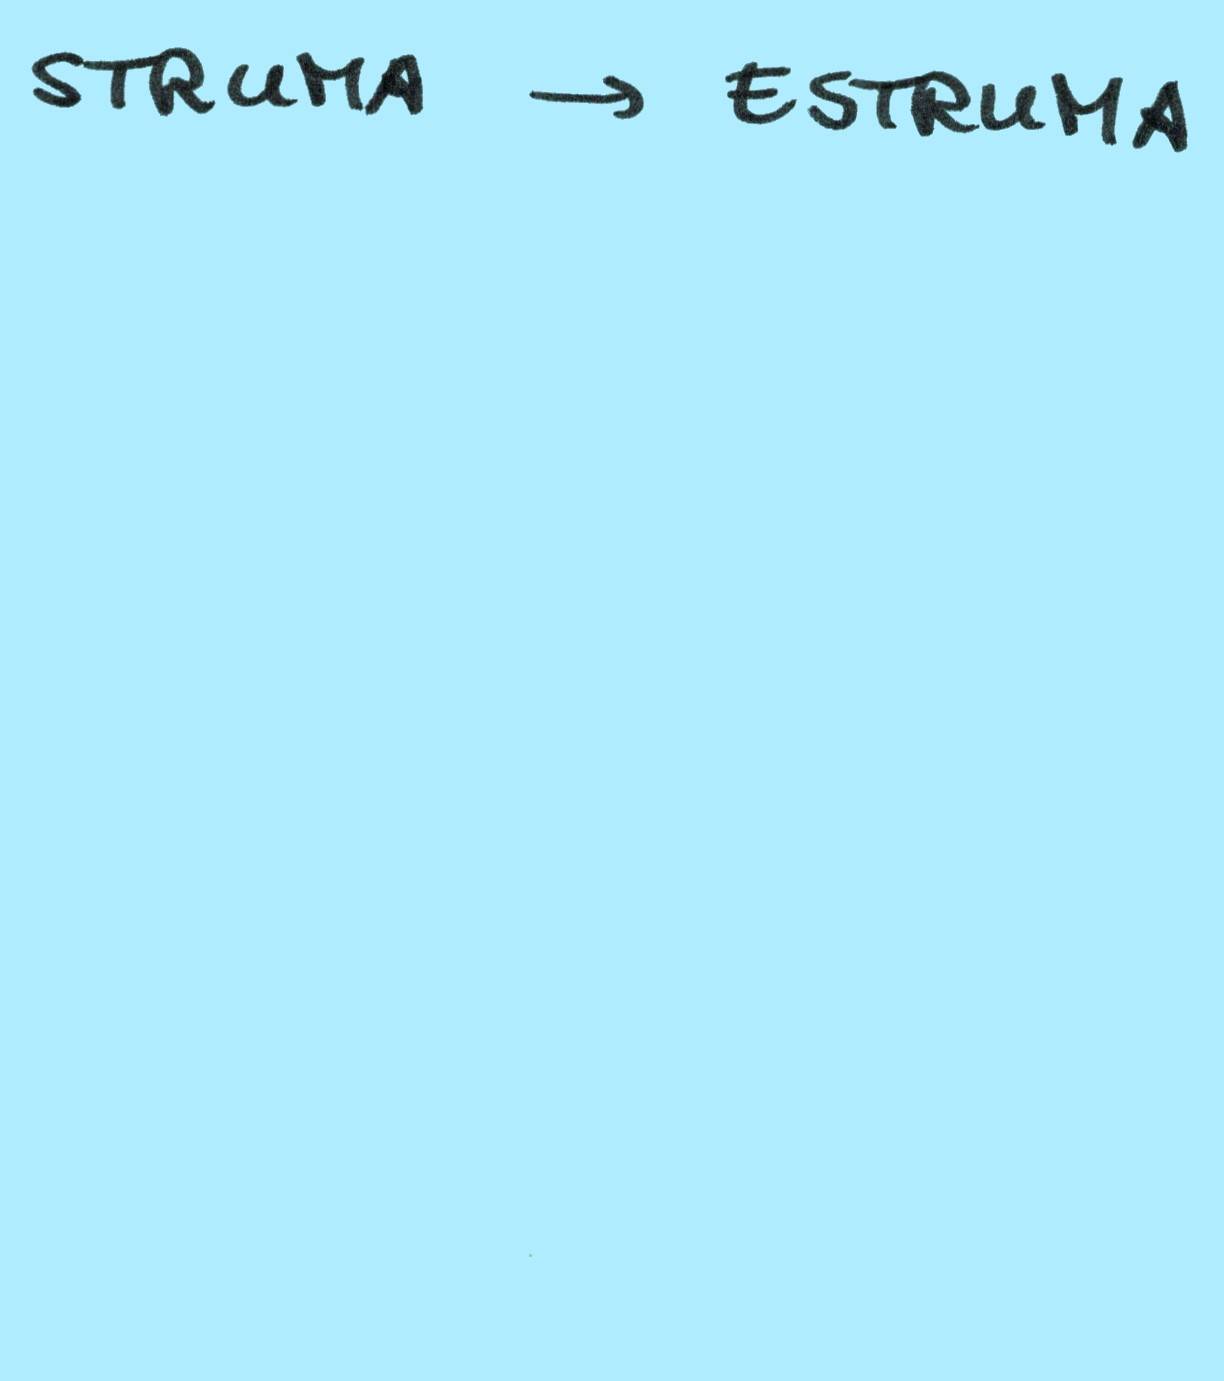 STRUMA → ESTRUMA